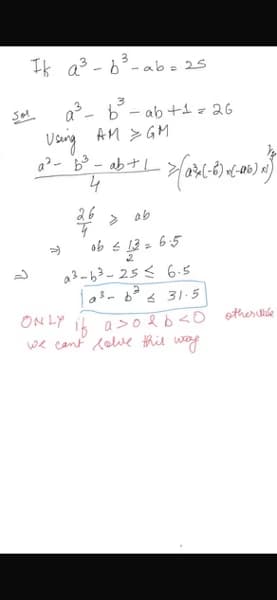 If a³ - b³ - ab = 25
Sol a³ - b³ - ab + 1 = 26
Using AM ≥ GM
(a³ - b³ - ab + 1)/4 ≥ (a³×(-b³)×(-ab)×1)^1/4
26/4 ≥ ab
⇒ ab ≤ 13/2 = 6.5
⇒ a³ - b³ - 25 ≤ 6.5
a³ - b³ ≤ 31.5
ONLY if a > 0 & b < 0 otherwise
we cant solve this way